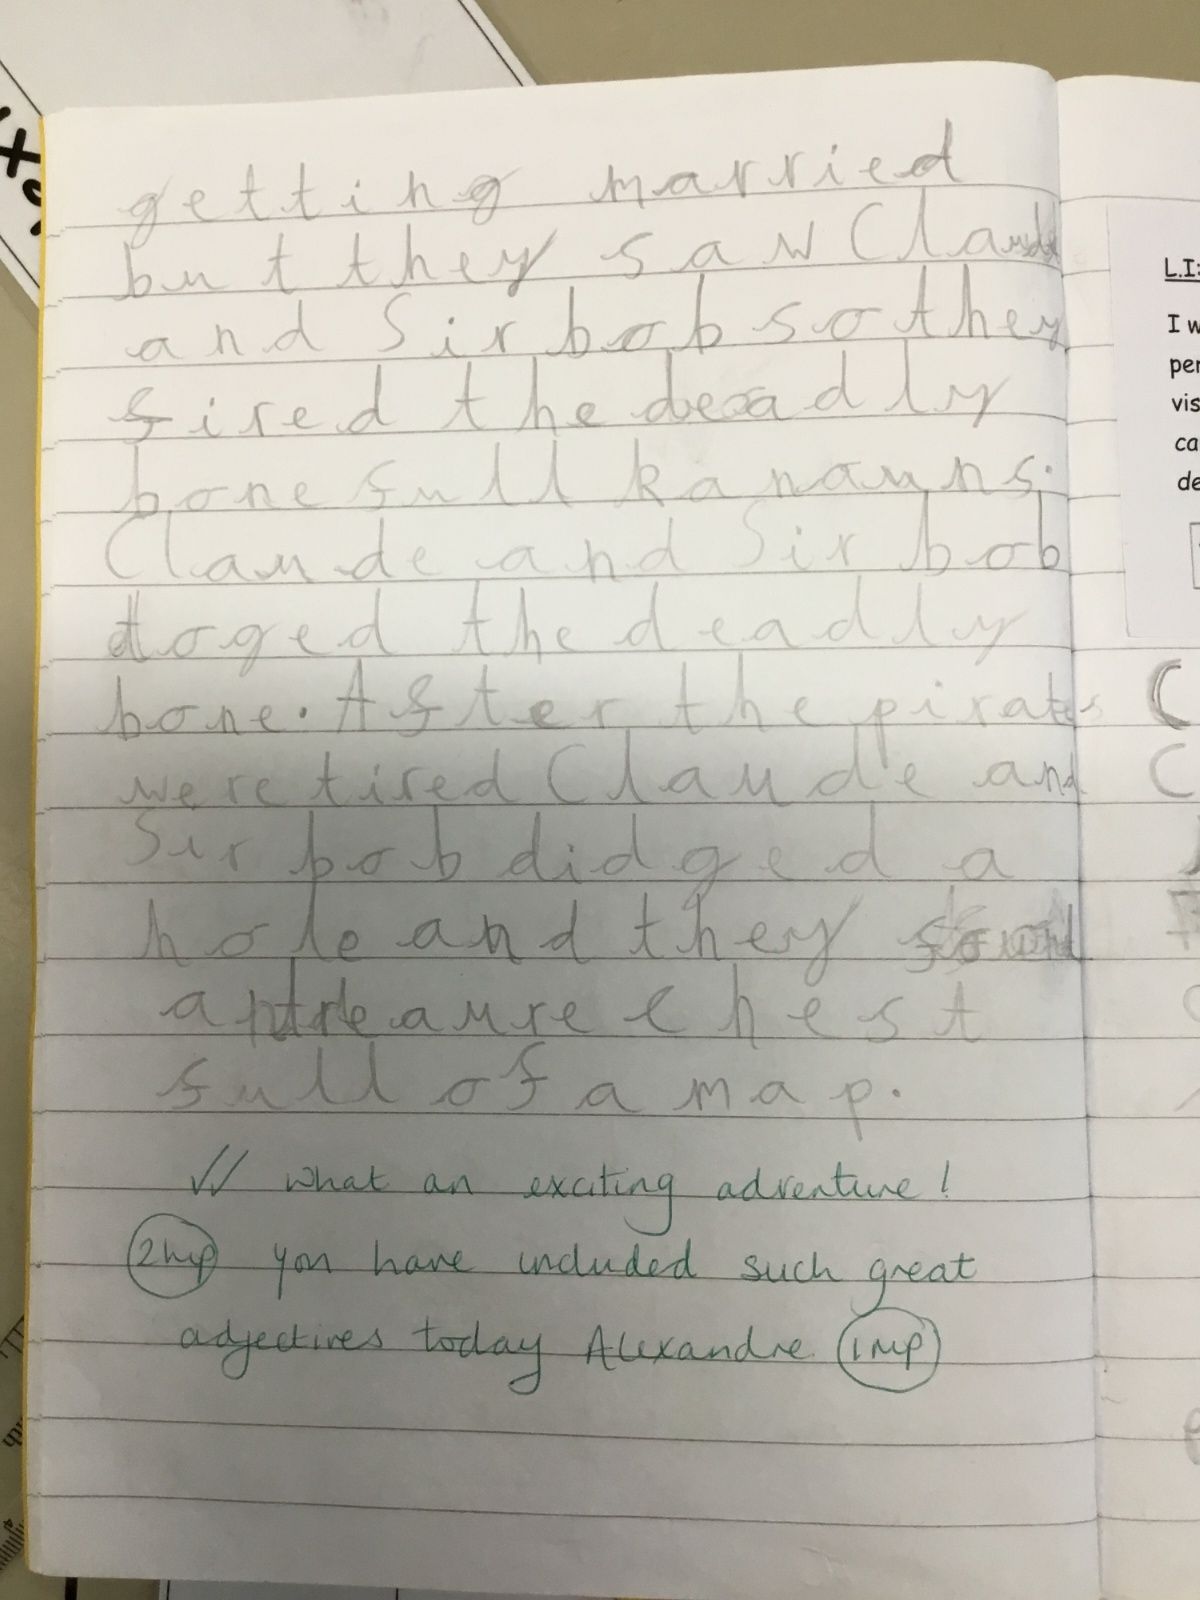 getting married
but they saw Claude
and Sir bob so they
fired the deadly
bone full kanauns.
Claude and Sir bob
doged the deadly
bone. After the pirates
were tired Claude and
Sir bob didged a
hole and they found
a treaure chest
full of a map.
✓✓ what an exciting adventure!
2hp you have included such great
adjectives today Alexandre. 1hp
L.I:
I w
per
vis
ca
de